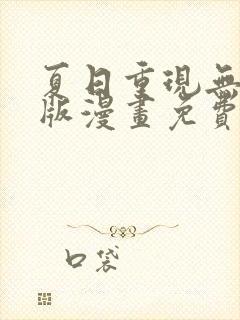 夏日重現無
版漫畫免費
口袋